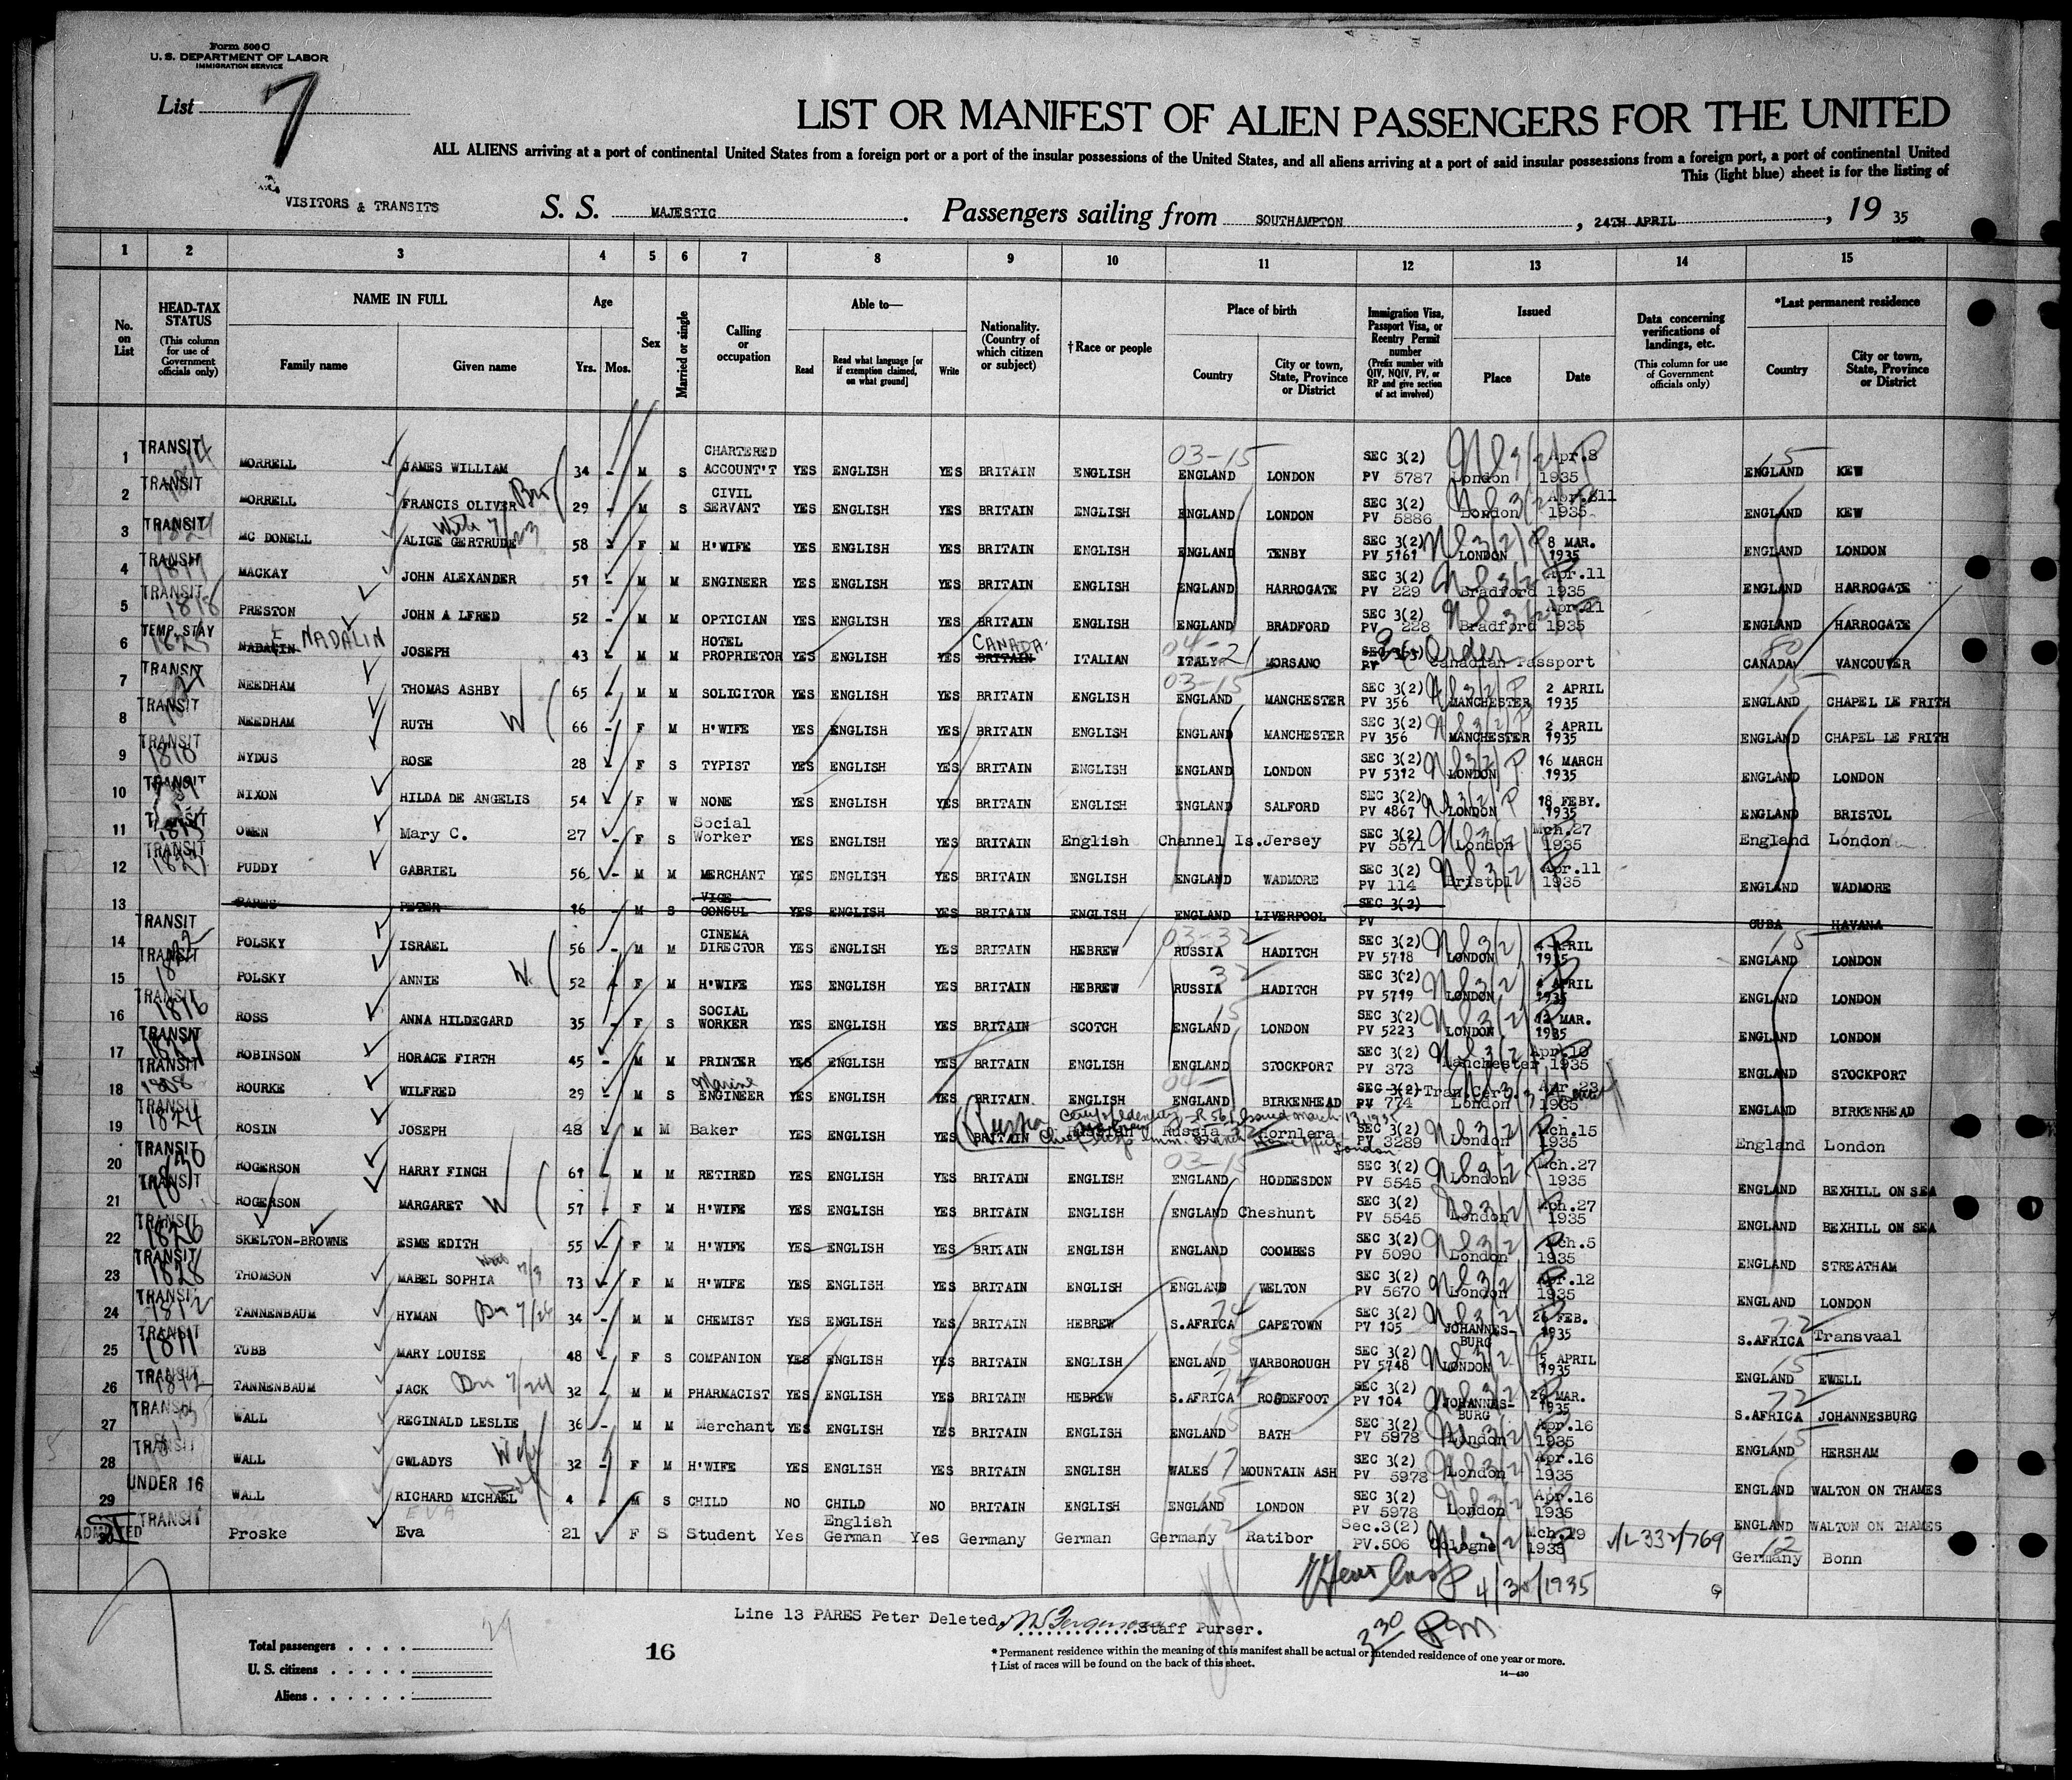 Form 500 C
U. S. DEPARTMENT OF LABOR
IMMIGRATION SERVICE
List 7
LIST OR MANIFEST OF ALIEN PASSENGERS FOR THE UNITED
ALL ALIENS arriving at a port of continental United States from a foreign port or a port of the insular possessions of the United States, and all aliens arriving at a port of said insular possessions from a foreign port, a port of continental United
This (light blue) sheet is for the listing of
VISITORS & TRANSITS S. S. MAJESTIC. Passengers sailing from SOUTHAMPTON, 24TH APRIL, 19 35
1 2 3 4 5 6 7 8 9 10 11 12 13 14 15
No. on List
HEAD-TAX STATUS (This column for use of Government officials only)
NAME IN FULL
Family name Given name
Age
Yrs. Mos.
Sex
Married or single
Calling or occupation
Able to—
Read Read what language [or if exemption claimed, on what ground] Write
Nationality. (Country of which citizen or subject)
†Race or people
Place of birth
Country City or town, State, Province or District
Immigration Visa, Passport Visa, or Reentry Permit number (Prefix number with QIV, NQIV, PV, or RP and give section of act involved)
Issued
Place Date
Data concerning verifications of landings, etc. (This column for use of Government officials only)
*Last permanent residence
Country City or town, State, Province or District
1 TRANSIT MORRELL JAMES WILLIAM 34 - M S CHARTERED ACCOUNT'T YES ENGLISH YES BRITAIN ENGLISH 03-15 ENGLAND LONDON SEC 3(2) PV 5787 London Apr.8 1935 15 ENGLAND KEW
2 TRANSIT MORRELL FRANCIS OLIVER Bro 29 - M S CIVIL SERVANT YES ENGLISH YES BRITAIN ENGLISH ENGLAND LONDON SEC 3(2) PV 5886 London 1935 ENGLAND KEW
3 TRANSIT MC DONELL ALICE GERTRUDE 58 F M H'WIFE YES ENGLISH YES BRITAIN ENGLISH ENGLAND TENBY SEC 3(2) PV 5161 LONDON 8 MAR. 1935 ENGLAND LONDON
4 TRANSIT MACKAY JOHN ALEXANDER 51 - M M ENGINEER YES ENGLISH YES BRITAIN ENGLISH ENGLAND HARROGATE SEC 3(2) PV 229 Bradford Apr.11 1935 ENGLAND HARROGATE
5 TRANSIT 1818 PRESTON JOHN A LFRED 52 - M M OPTICIAN YES ENGLISH YES BRITAIN ENGLISH ENGLAND BRADFORD SEC 3(2) PV 228 Bradford Apr.11 1935 ENGLAND HARROGATE
6 TEMP. STAY 1825 NADALIN JOSEPH 43 M M HOTEL PROPRIETOR YES ENGLISH YES CANADA. BRITAIN ITALIAN 04-21 ITALY MORSANO PV Canadian Passport 80 CANADA VANCOUVER
7 TRANSIT NEEDHAM THOMAS ASHBY 65 - M M SOLICITOR YES ENGLISH YES BRITAIN ENGLISH 03-15 ENGLAND MANCHESTER SEC 3(2) PV 356 MANCHESTER 2 APRIL 1935 15 ENGLAND CHAPEL LE FRITH
8 TRANSIT NEEDHAM RUTH W 66 - F M H'WIFE YES ENGLISH YES BRITAIN ENGLISH ENGLAND MANCHESTER SEC 3(2) PV 356 MANCHESTER 2 APRIL 1935 ENGLAND CHAPEL LE FRITH
9 TRANSIT 1810 NYDUS ROSE 28 F S TYPIST YES ENGLISH YES BRITAIN ENGLISH ENGLAND LONDON SEC 3(2) PV 5312 LONDON 16 MARCH 1935 ENGLAND LONDON
10 TRANSIT NIXON HILDA DE ANGELIS 54 F W NONE YES ENGLISH YES BRITAIN ENGLISH ENGLAND SALFORD SEC 3(2) PV 4867 LONDON 18 FEBY. 1935 ENGLAND BRISTOL
11 TRANSIT OWEN Mary C. 27 - F S Social Worker YES ENGLISH YES BRITAIN English Channel Is. Jersey SEC 3(2) PV 5571 London Mch.27 1935 England London
12 TRANSIT PUDDY GABRIEL 56 - M M MERCHANT YES ENGLISH YES BRITAIN ENGLISH ENGLAND WADMORE SEC 3(2) PV 114 Bristol Apr.11 1935 ENGLAND WADMORE
13 PARES PETER 16 - M S VICE CONSUL YES ENGLISH YES BRITAIN ENGLISH ENGLAND LIVERPOOL SEC 3(2) PV CUBA HAVANA
14 TRANSIT POLSKY ISRAEL 56 - M M CINEMA DIRECTOR YES ENGLISH YES BRITAIN HEBREW 03-32 RUSSIA HADITCH SEC 3(2) PV 5718 LONDON 4 APRIL 1935 15 ENGLAND LONDON
15 TRANSIT POLSKY ANNIE W. 52 F M H'WIFE YES ENGLISH YES BRITAIN HEBREW 32 RUSSIA HADITCH SEC 3(2) PV 5719 LONDON 4 APRIL 1935 ENGLAND LONDON
16 TRANSIT 1816 ROSS ANNA HILDEGARD 35 - F S SOCIAL WORKER YES ENGLISH YES BRITAIN SCOTCH 15 ENGLAND LONDON SEC 3(2) PV 5223 LONDON 12 MAR. 1935 ENGLAND LONDON
17 TRANSIT ROBINSON HORACE FIRTH 45 - M M PRINTER YES ENGLISH YES BRITAIN ENGLISH ENGLAND STOCKPORT SEC 3(2) PV 373 Manchester Apr.10 1935 ENGLAND STOCKPORT
18 TRANSIT 1808 ROURKE WILFRED 29 M S Marine ENGINEER YES ENGLISH YES BRITAIN ENGLISH 04- ENGLAND BIRKENHEAD SEC 3(2) Tran.Cert. PV 774 London Apr.23 1935 ENGLAND BIRKENHEAD
19 TRANSIT 1824 ROSIN JOSEPH 48 M M Baker YES ENGLISH YES Russia BRITAIN Russia SEC 3(2) PV 3289 London Mch.15 1935 England London
20 TRANSIT ROGERSON HARRY FINCH 61 M M RETIRED YES ENGLISH YES BRITAIN ENGLISH 03-15 ENGLAND HODDESDON SEC 3(2) PV 5545 London Mch.27 1935 ENGLAND BEXHILL ON SEA
21 TRANSIT ROGERSON MARGARET W 57 F M H'WIFE YES ENGLISH YES BRITAIN ENGLISH ENGLAND Cheshunt SEC 3(2) PV 5545 London Mch.27 1935 ENGLAND BEXHILL ON SEA
22 TRANSIT 1826 SKELTON-BROWNE ESME EDITH 55 F M H'WIFE YES ENGLISH YES BRITAIN ENGLISH ENGLAND COOMBES SEC 3(2) PV 5090 London Mch.5 1935 ENGLAND STREATHAM
23 TRANSIT 1828 THOMSON MABEL SOPHIA 73 F M H'WIFE YES ENGLISH YES BRITAIN ENGLISH ENGLAND WELTON SEC 3(2) PV 5670 London Apr.12 1935 ENGLAND LONDON
24 TRANSIT 1812 TANNENBAUM HYMAN 34 - M M CHEMIST YES ENGLISH YES BRITAIN HEBREW 74 S.AFRICA CAPETOWN SEC 3(2) PV 105 JOHANNES-BURG 26 FEB. 1935 72 S.AFRICA Transvaal
25 TRANSIT 1811 TUBB MARY LOUISE 48 F S COMPANION YES ENGLISH YES BRITAIN ENGLISH 15 ENGLAND WARBOROUGH SEC 3(2) PV 5748 LONDON 5 APRIL 1935 15 ENGLAND EWELL
26 TRANSIT 1812 TANNENBAUM JACK 32 M M PHARMACIST YES ENGLISH YES BRITAIN HEBREW 74 S.AFRICA ROODEFOOT SEC 3(2) PV 104 JOHANNES-BURG MAR. 1935 72 S.AFRICA JOHANNESBURG
27 TRANSIT WALL REGINALD LESLIE 36 - M M Merchant YES ENGLISH YES BRITAIN ENGLISH 15 ENGLAND BATH SEC 3(2) PV 5978 London Apr.16 1935 15 ENGLAND HERSHAM
28 TRANSIT WALL GWLADYS Wife 32 - F M H'WIFE YES ENGLISH YES BRITAIN ENGLISH WALES 17 MOUNTAIN ASH SEC 3(2) PV 5978 London Apr.16 1935 ENGLAND WALTON ON THAMES
29 UNDER 16 WALL RICHARD MICHAEL 4 - M S CHILD NO CHILD NO BRITAIN ENGLISH 15 ENGLAND LONDON SEC 3(2) PV 5978 London Apr.16 1935 ENGLAND WALTON ON THAMES
30 ADMITTED TRANSIT Proske Eva EVA 21 F S Student Yes English German Yes Germany German Germany 12 Ratibor Sec.3(2) PV.506 Cologne Mch.19 1935 332/769 12 Germany Bonn
4/30/1935
3 30 PM
Line 13 PARES Peter Deleted. Staff Purser.
Total passengers . . . . 29
U. S. citizens . . . . .
Aliens . . . . . .
16
* Permanent residence within the meaning of this manifest shall be actual or intended residence of one year or more.
† List of races will be found on the back of this sheet.
14—430